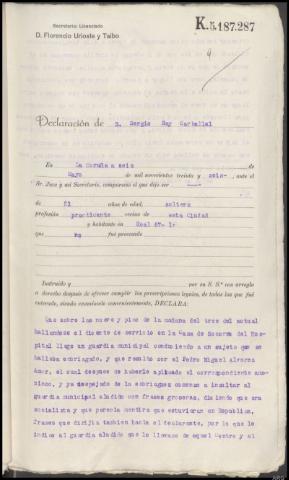 Secretario: Licenciado
D. Florencio Urioste y Taibo
K.5.187.287
Declaración de D. Sergio Rey Carballal
En La Coruña a seis de
Mayo de mil novecientos treinta y seis-, ante el
Sr. Juez y mi Secretario, compareció el que dijo ser
de 21 años de edad, soltero
profesión practicante vecino de esta Ciudad
y habitante en Real 67-1º
que no fué procesado
Instruido y por su S.ª con arreglo
a derecho después de ofrecer cumplir las prescripciones legales, de todas las que fué
enterado, siendo examinado convenientemente, DECLARA:
Que sobre las nueve y pico de la mañana del tres del actual
hallandose el dicente de servicio en la Casa de Socorro del Hos-
pital llego un guardia municipal conduciendo a un sujeto que se
hallaba embriagado, y que resulto ser el Pedro Miguel Alvarez
Amor, el cual despues de haberle aplicado el correspondiente amo-
niaco, y ya despejado de la embriaguez comenzo a insultar al
guardia municipal aludido con frases groseras, diciendo que era
socialista y que parecia mentira que estuvieran en Republica,
frases que dirijia tambien hacia el declarante, por lo que le
indico al guardia aludido que lo llevase de aquel Centro y al